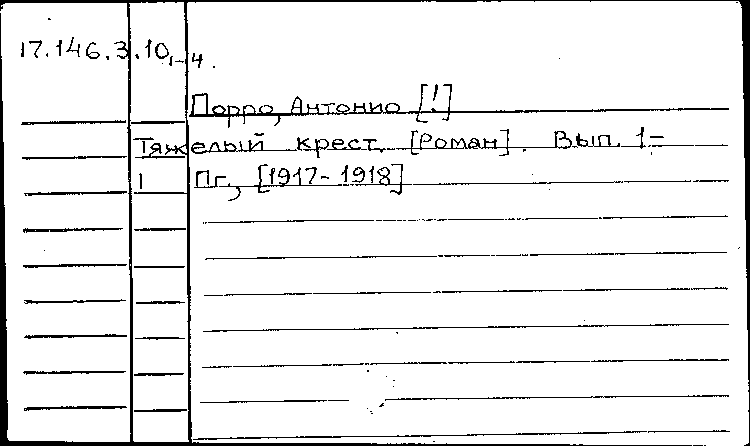 17.146.3.10,1-4.
Порро, Антонио [!]
Тяжелый крест. [Роман]. Вып. 1-
1 Пг., [1917-1918]